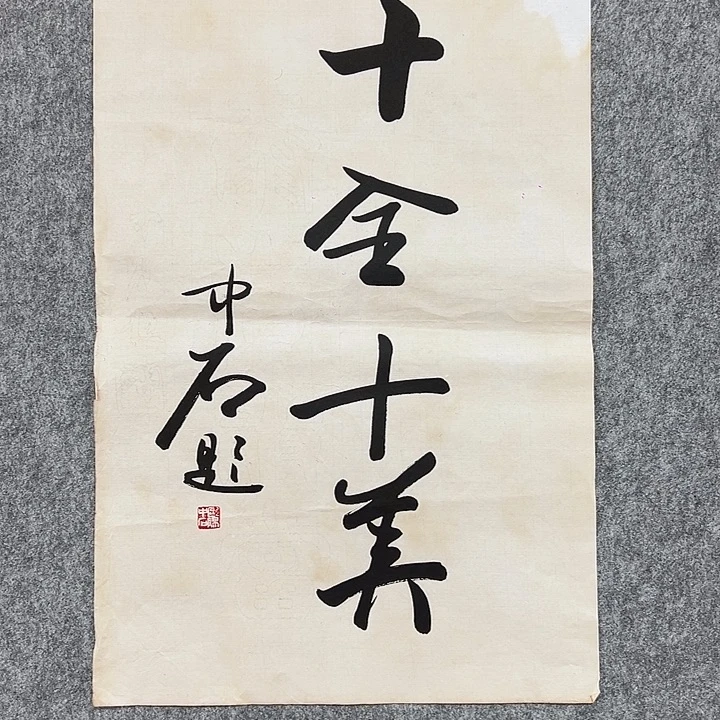 十全十美
中石题